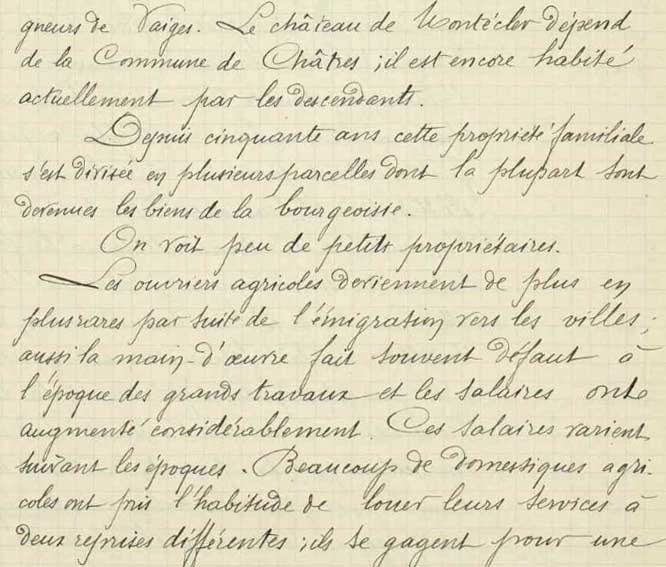 gneurs de Vaiges. Le château de Montécler dépend
de la Commune de Châtres ; il est encore habité
actuellement par les descendants.
Depuis cinquante ans cette propriété familiale
s'est divisée en plusieurs parcelles dont la plupart sont
devenues les biens de la bourgeoisie.
On voit peu de petits propriétaires.
Les ouvriers agricoles deviennent de plus en
plus rares par suite de l'émigration vers les villes ;
aussi la main-d'œuvre fait souvent défaut à
l'époque des grands travaux et les salaires ont
augmenté considérablement. Ces salaires varient
suivant les époques. Beaucoup de domestiques agri-
coles ont pris l'habitude de louer leurs services à
deux reprises différentes ; ils se gagent pour une